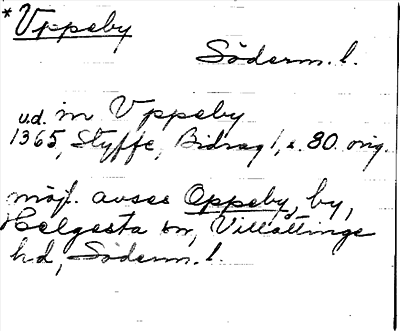 * Vppeby
Söderm. l.
u.d. in Vppeby
1365, Styffe, Bidrag 1, s. 80. orig.
möjl. avses Oppeby, by,
Helgesta sn, Villåttinge
hd, Söderm. l.